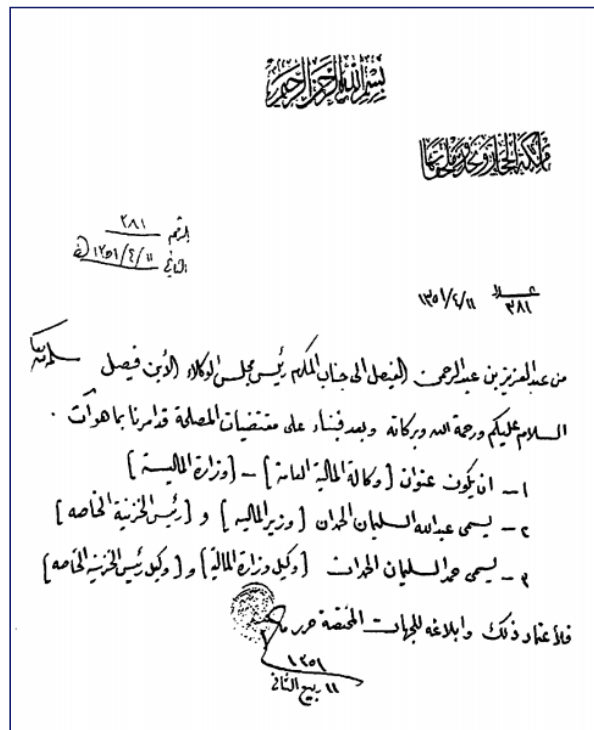 بسم الله الرحمن الرحيم
مملكة الحجاز ونجد وملحقاتها
الرقم ٣٨١
التاريخ ١٣٥١/٤/١١
عدد ٣٨١ ١٣٥١/٤/١١
من عبدالعزيز بن عبدالرحمن الفيصل الى جناب المكرم رئيس مجلس الوكلاء الأبن فيصل سلمه الله
السلام عليكم ورحمة الله وبركاته وبعد فبناء على مقتضيات المصلحة قد امرنا بما هو آت .
١ – ان يكون عنوان [وكالة المالية العامة] – [وزارة المالية]
٢ – يسمى عبدالله السليمان الحمدان [وزير المالية] و [رئيس الخزينة الخاصه]
٣ – يسمى حمد السليمان الحمدان [وكيل وزارة المالية] و [وكيل رئيس الخزينة الخاصه]
فلأعتماد ذلك وابلاغه للجهات المختصة حرر
١٣٥١
١١ ربيع الثاني